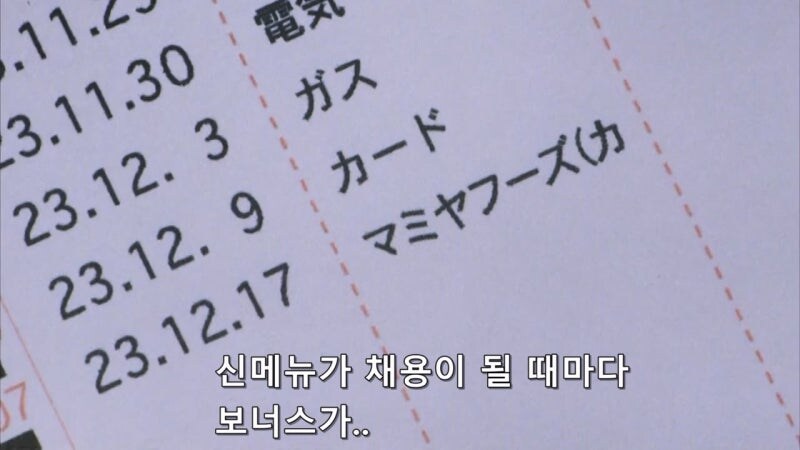 23.11.30 電気
23.12. 3 ガス
23.12. 9 カード
23.12.17 マミヤフーズ(カ
07
신메뉴가 채용이 될 때마다
보너스가..